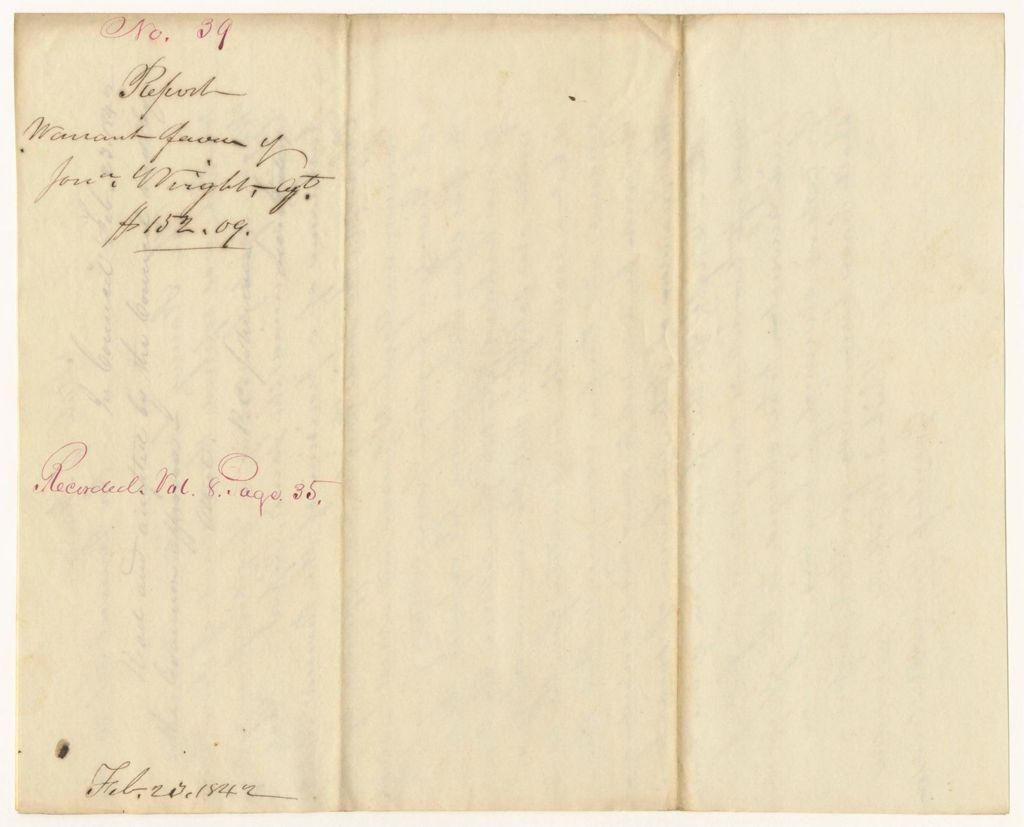 No. 39
Report
Warrant favor of
Jona. Wright, Agt.
$152.09.
Recorded. Vol. 8. Page. 35.
Feb. 23. 1842